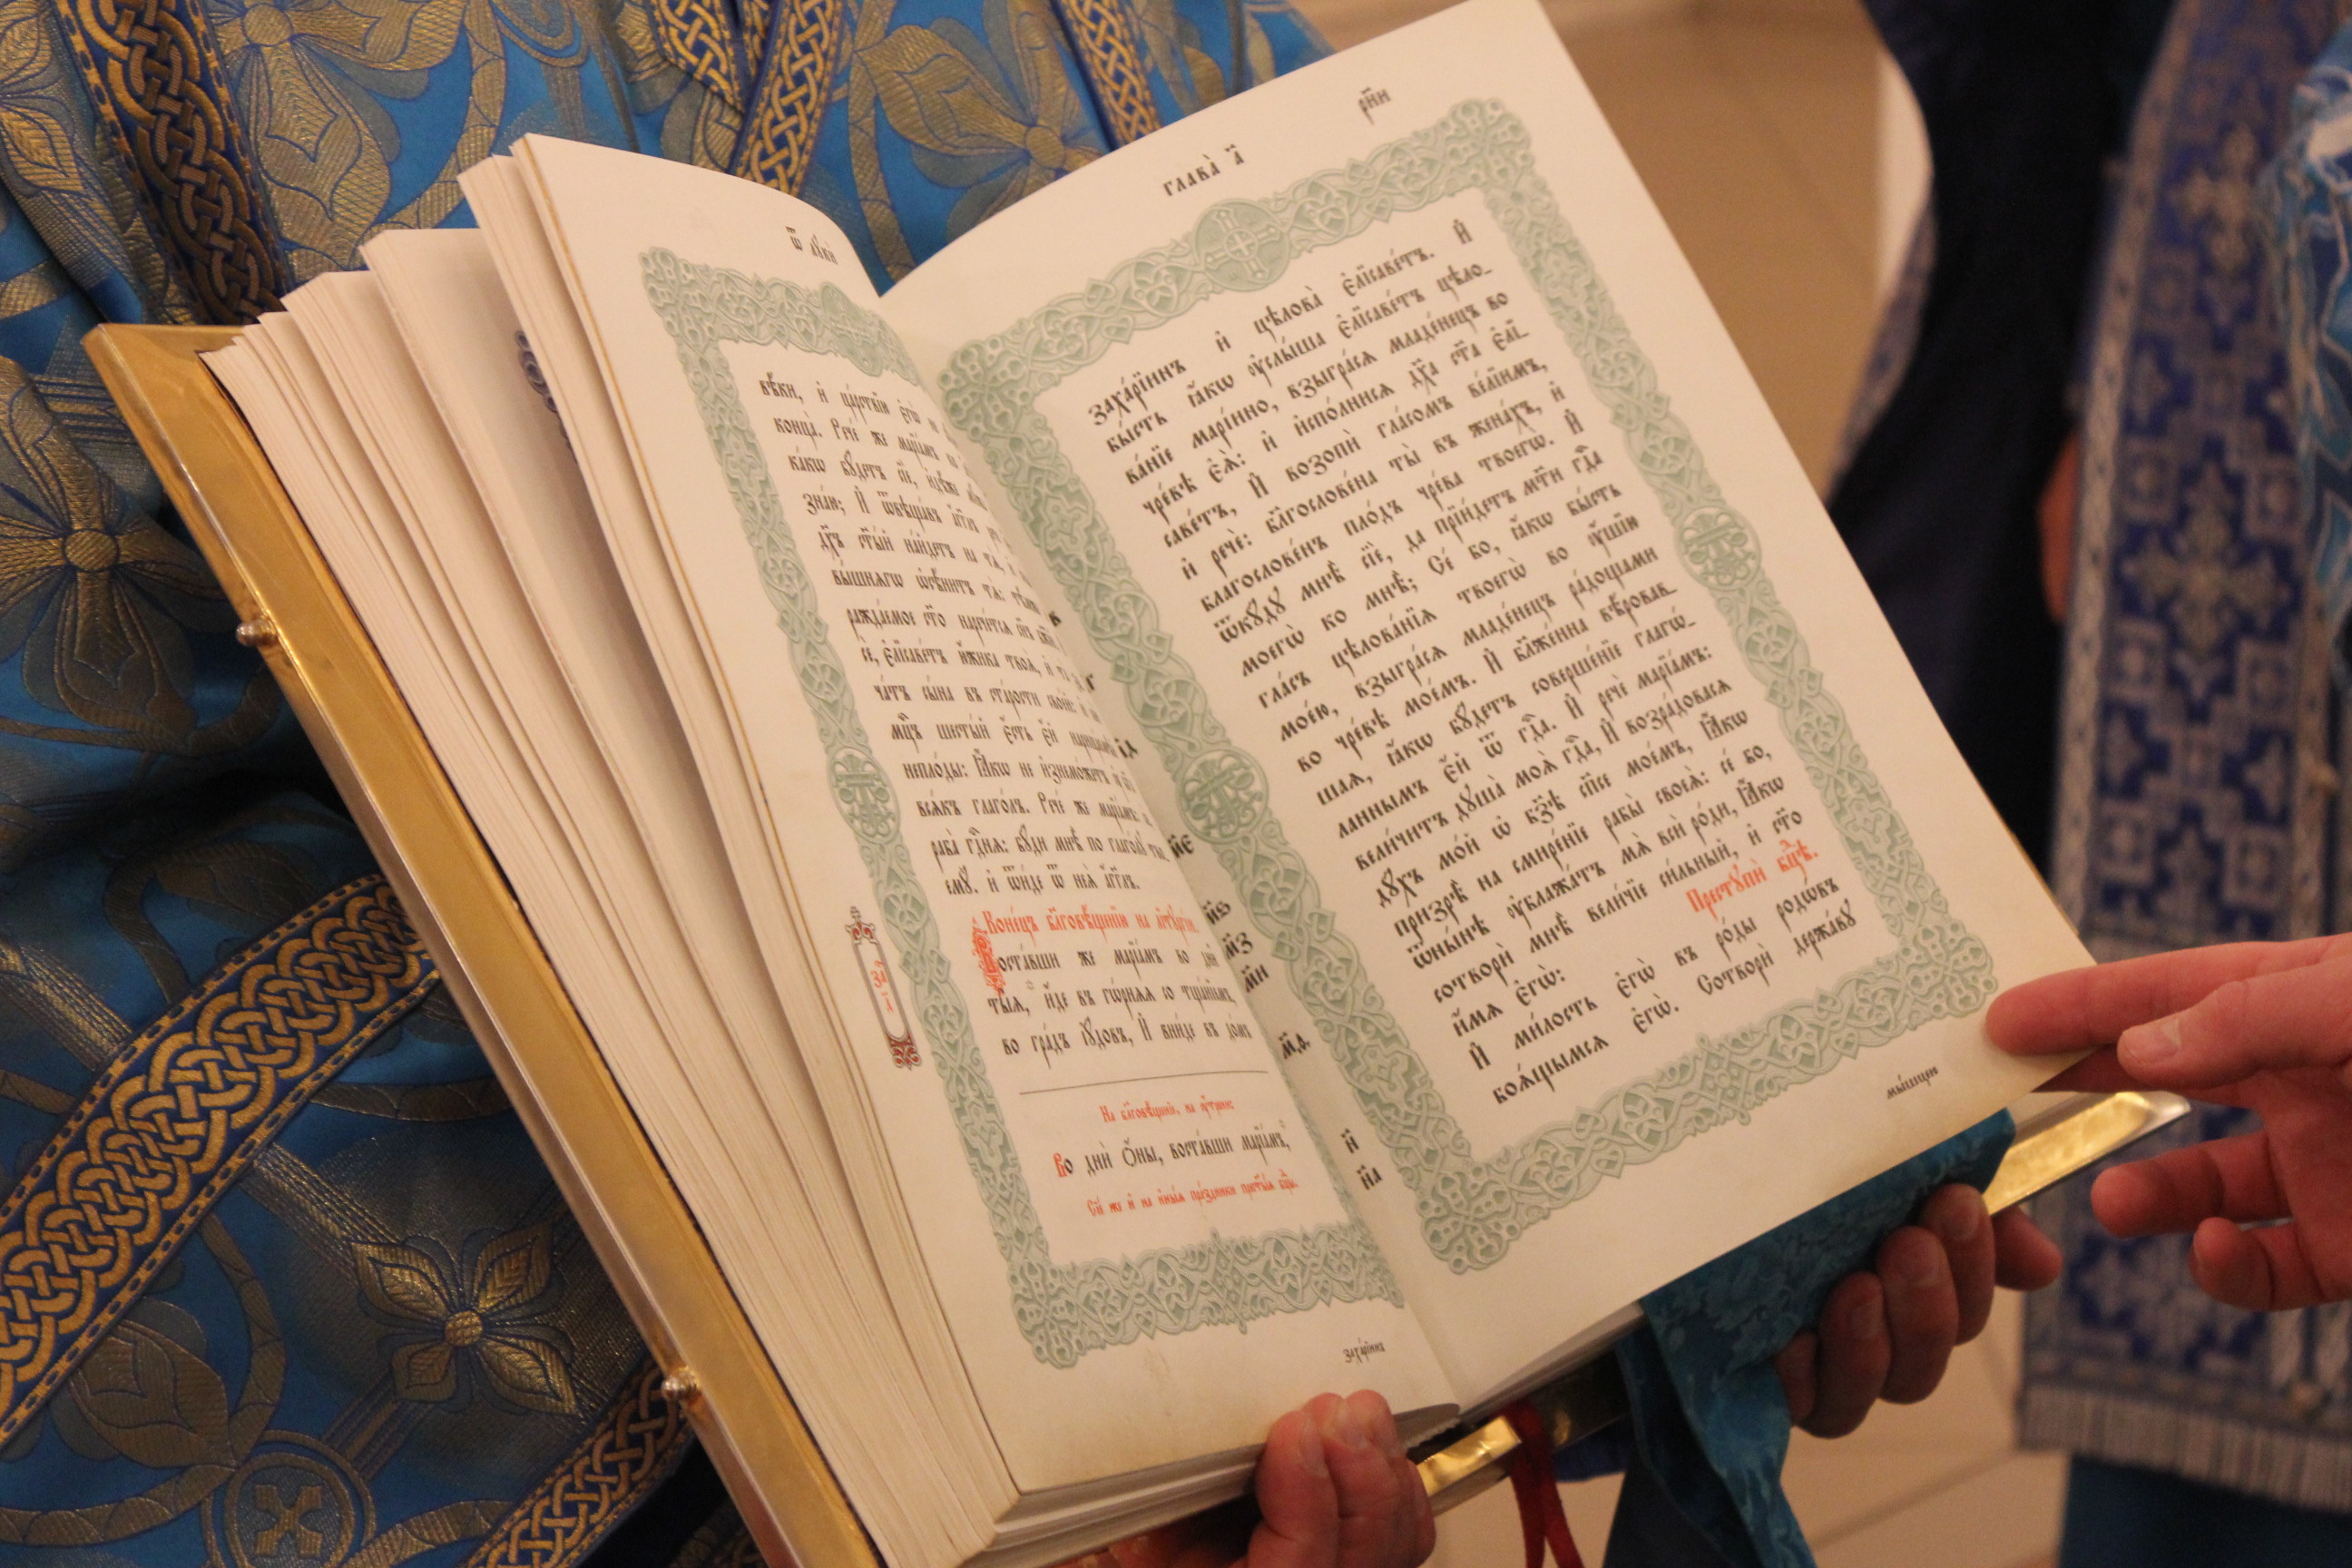 Ѿ лꙋкѝ
вѣ́ки, и҆ ца́рствїю є҆гѡ̀ не
конца̀. Рече́ же марїа́мъ ко
ка́кѡ бꙋ́детъ сїѐ, и҆дѣ́же
зна́ю; И҆ ѿвѣща́въ а҆́гг҃лъ
дх҃ъ ст҃ы́й на́йдетъ на тѧ̀, и҆
вы́шнѧгѡ ѡ҆сѣни́тъ тѧ̀: тѣ́мже
ражда́емое ст҃о нарече́тсѧ сн҃ъ
сѐ, є҆лїсаве́тъ ю҆́жика твоѧ̀, и҆ та̀
ча́тъ сы́на въ ста́рости свое́й: и҆
мц҃ъ шесты́й є҆́сть є҆́й нарица́емѣй
непло́ды: Ꙗ҆́кѡ не и҆знемо́жетъ
всѧ́къ глаго́лъ. Рече́ же марїа́мъ:
раба̀ гд҇нѧ: бꙋ́ди мнѣ̀ по глаго́лꙋ
емꙋ̀. и҆ ѿи́де ѿ неѧ̀ а҆́гг҃лъ.
Коне́цъ бл҃говѣ́щенїю на лїтꙋргі́и.
Воста́вши же марїа́мъ во дни̑
ты̑ѧ, и҆́де въ гѡ́рнѧѧ со тща́нїемъ,
во гра́дъ і҆ꙋ́довъ, И҆ вни́де въ до́мъ
На бл҃говѣ́щенїе, на ᲂу҆́трени:
Во дни̑ ѻ҆́ны, воста́вши марїа́мъ,
Сїѐ же и҆ на и҆ны̑ѧ пра́здники прест҃ы́ѧ бц҃ы.
заха́рїинъ
глава̀ а҃
рн҃и
заха́рїинъ и҆ цѣлова̀ є҆лїсаве́тъ. И҆
бы́сть ꙗ҆́кѡ ᲂу҆слы́ша є҆лїсаве́тъ цѣло-
ва́нїе марі́ино, взыгра́сѧ младе́нецъ во
чре́вѣ є҆ѧ̀: и҆ и҆спо́лнисѧ дх҃а ст҃а є҆лї-
саве́тъ, И҆ возопѝ гла́сомъ ве́лїимъ,
и҆ речѐ: бл҃гослове́на ты̀ въ жена́хъ, и҆
благослове́нъ пло́дъ чре́ва твоегѡ̀. И҆
ѿкꙋ́дꙋ мнѣ̀ сїѐ, да прїи́детъ мт҃и гд҇а
моегѡ̀ ко мнѣ̀; Се́ бо, ꙗ҆́кѡ бы́сть
гла́съ цѣлова́нїѧ твоегѡ̀ во ᲂу҆́шїю
мое́ю, взыгра́сѧ младе́нецъ ра́дощами
во чре́вѣ мое́мъ. И҆ бл҃же́нна вѣ́ровав-
шаѧ, ꙗ҆́кѡ бꙋ́детъ соверше́нїе глагѡ́-
ланнымъ є҆́й ѿ гд҇а. И҆ речѐ марїа́мъ:
вели́читъ дꙋша̀ моѧ̀ гд҇а, И҆ возра́довасѧ
дꙋ́хъ мо́й ѡ҆ бз҃ѣ сп҃сѣ мое́мъ, Ꙗ҆́кѡ
призрѣ̀ на смире́нїе рабы̀ своеѧ̀: се́ бо,
ѿны́нѣ ᲂу҆блажа́тъ мѧ̀ всѝ ро́ди, Ꙗ҆́кѡ
сотворѝ мнѣ̀ вели́чїе си́льный, и҆ ст҃о
и҆́мѧ є҆гѡ̀: Престꙋпѝ бц҃ѣ.
И҆ ми́лость є҆гѡ̀ въ ро́ды родѡ́въ
боѧ́щымсѧ є҆гѡ̀. Сотворѝ держа́вꙋ
мы́шцею